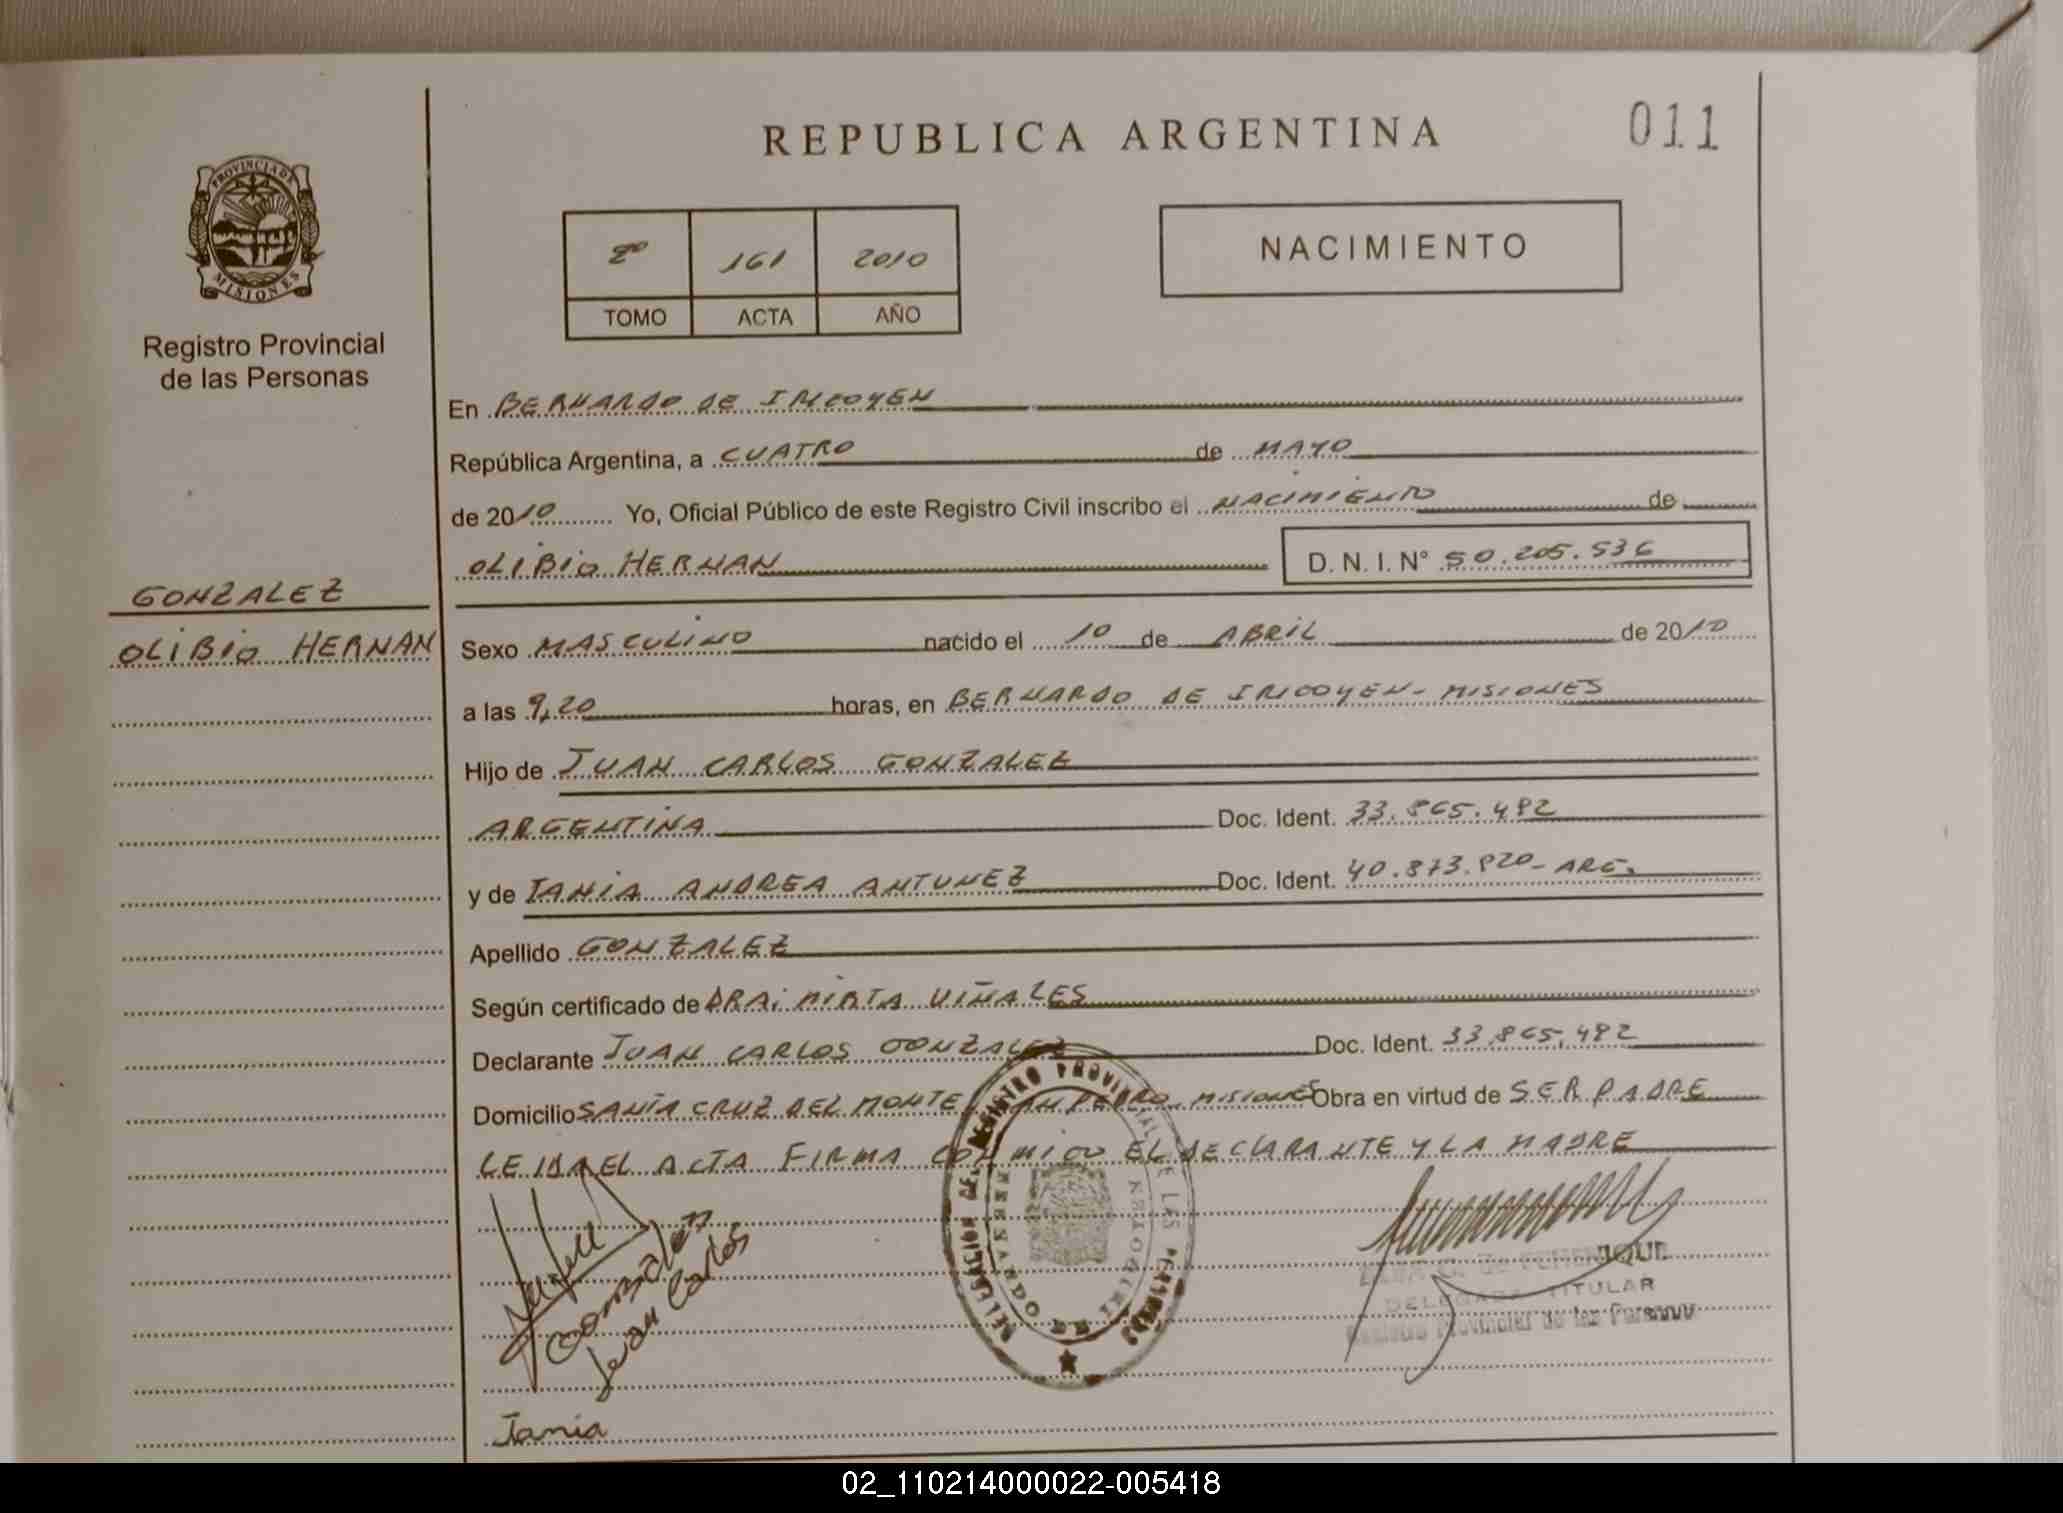 REPUBLICA ARGENTINA
011
PROVINCIA DE
MISIONES
Registro Provincial
de las Personas
2º 161 2010
TOMO ACTA AÑO
NACIMIENTO
En BERNARDO DE IRIGOYEN
República Argentina, a CUATRO de MAYO
de 2010 Yo, Oficial Público de este Registro Civil inscribo el NACIMIENTO de
OLIBIO HERNAN D. N. I. N° 50.205.536
GONZALEZ
OLIBIO HERNAN
Sexo MASCULINO nacido el 10 de ABRIL de 2010
a las 9,20 horas, en BERNARDO DE IRIGOYEN - MISIONES
Hijo de JUAN CARLOS GONZALEZ
ARGENTINA Doc. Ident. 33.865.482
y de TANIA ANDREA ANTUNEZ Doc. Ident. 40.873.820 - ARG.
Apellido GONZALEZ
Según certificado de DRA: MIRTA VIÑALES
Declarante JUAN CARLOS GONZALEZ Doc. Ident. 33.865.482
Domicilio SANTA CRUZ DEL MONTE SAN PEDRO MISIONES Obra en virtud de SER PADRE
LEIDA EL ACTA FIRMA CONMIGO EL DECLARANTE Y LA MADRE
DELEGACION DEL REGISTRO PROVINCIAL DE LAS PERSONAS
BERNARDO DE IRIGOYEN
Gonzalez
Juan Carlos
DELEGADA TITULAR
Registro Provincial de las Personas
Tania
02_110214000022-005418